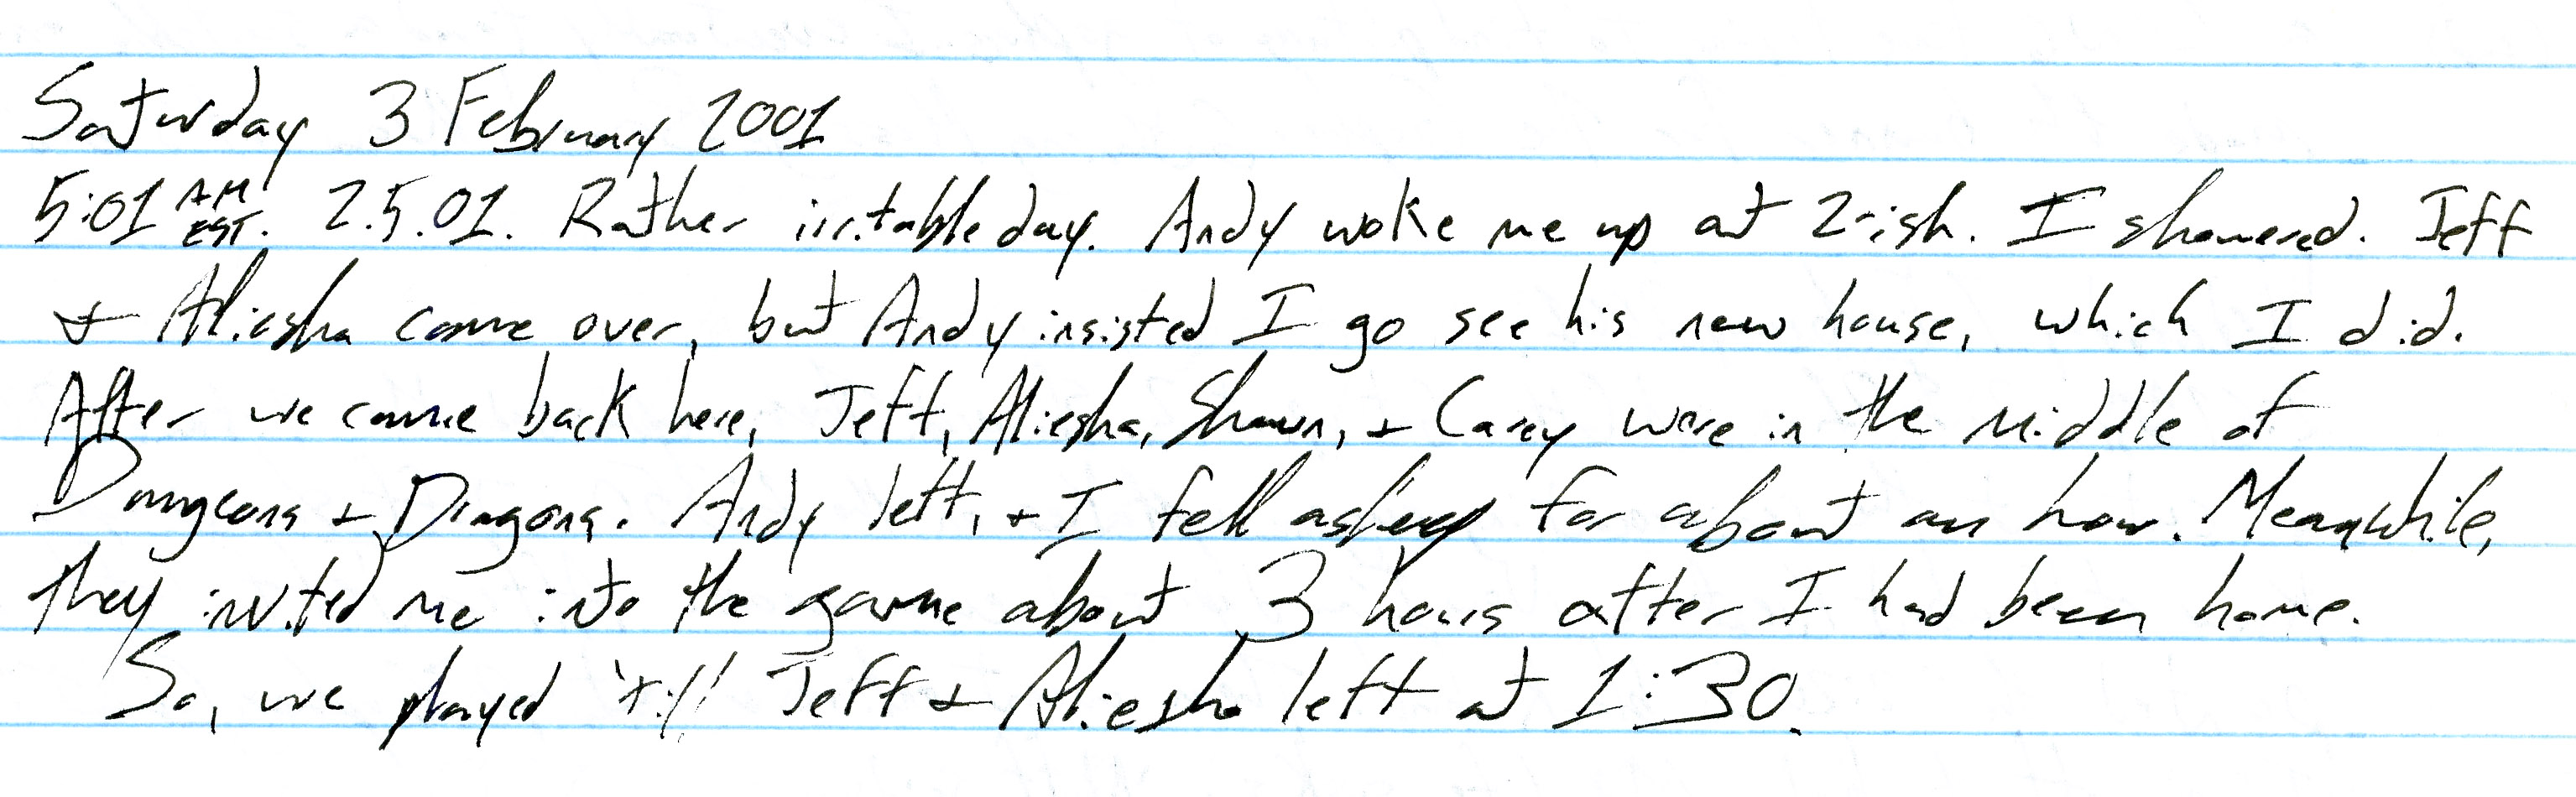 Saturday 3 February 2001
5:01 AM EST. 2.5.01. Rather irritable day. Andy woke me up at 2-ish. I showered. Jeff
+ Aliesha came over, but Andy insisted I go see his new house, which I did.
After we came back here, Jeff, Aliesha, Shawn, + Carey were in the middle of
Dungeons + Dragons. Andy left, + I fell asleep for about an hour. Meanwhile,
they invited me into the game about 3 hours after I had been home.
So, we played 'till Jeff + Aliesha left at 1:30.